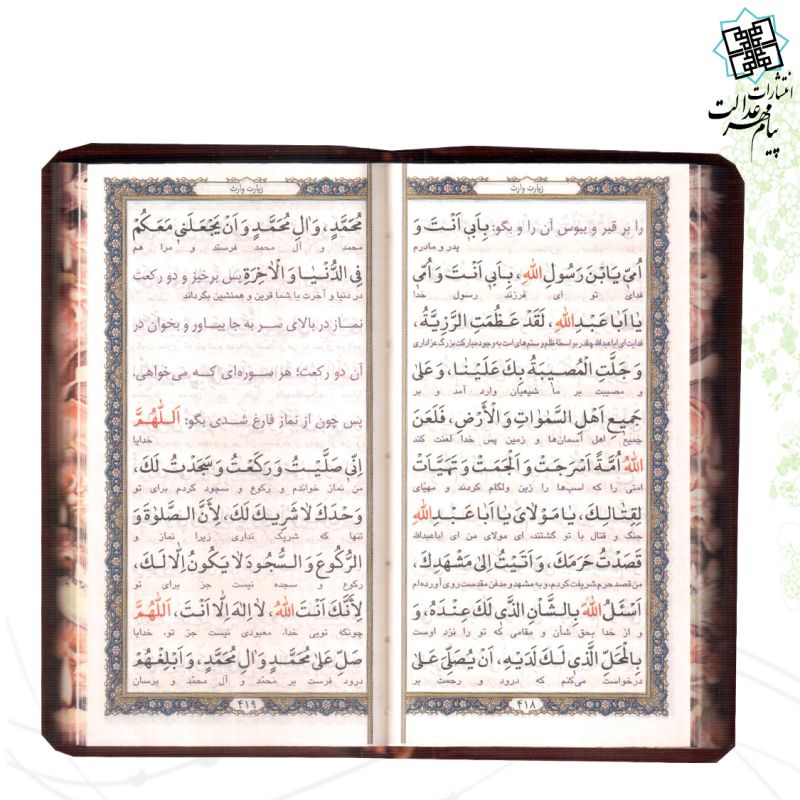 انتشارات
پیام مهر عدالت
زیارت وارث
را بر قبر و ببوس آن را و بگو: بِاَبی اَنْتَ وَ
پدر و مادرم
اُمّی یَابْنَ رَسُولِ اللهِ، بِاَبی اَنْتَ وَ اُمّی
فدای تو ای فرزند رسول خدا
یا اَبا عَبْدِاللهِ، لَقَدْ عَظُمَتِ الرَّزِیَّةُ،
فدایت ای اباعبدالله چقدر بواسطه ظلم و ستم‌های امت به وجود مبارکت بزرگ عزاداری
وَ جَلَّتِ الْمُصیبَةُ بِكَ عَلَیْنا، وَ عَلی
و مصیبت بر ما شیعیان وارد آمد و بر
جَمیعِ اَهْلِ السَّمٰواتِ وَ الْاَرْضِ، فَلَعَنَ
جمیع اهل آسمان‌ها و زمین پس خدا لعنت کند
اللهُ اُمَّةً اَسْرَجَتْ وَ اَلْجَمَتْ وَ تَهَیَّاَتْ
امتی را که اسب‌ها را زین ولگام کردند و مهیّای
لِقِتالِكَ، یا مَوْلایَ یا اَبا عَبْدِاللهِ
جنگ و قتال با تو گشتند، ای مولای من ای اباعبدالله
قَصَدْتُ حَرَمَكَ، وَ اَتَیْتُ اِلی مَشْهَدِكَ،
من قصد حرم شریفت کردم، و به مشهد و مدفن مقدست روی آورده‌ام
اَسْئَلُ اللهَ بِالشَّاْنِ الَّذی لَكَ عِنْدَهُ، وَ
و از خدا بحق شأن و مقامی که تو را نزد اوست
بِالْمَحَلِّ الَّذی لَكَ لَدَیْهِ، اَنْ یُصَلِّیَ عَلی
درخواست می‌کنم که درود و رحمت بر
۴۱۸
زیارت وارث
مُحَمَّدٍ، وَ الِ مُحَمَّدٍ وَ اَنْ یَجْعَلَنی مَعَکُمْ
محمد و آل محمد فرستد و مرا هم
فِی الدُّنْیا وَ الْاخِرَةِ پس برخیز و دو رکعت
در دنیا و آخرت با شما قرین و همنشین بگرداند
نماز در بالای سر به جا بیاور و بخوان در
آن دو رکعت؛ هر سوره‌ای که می‌خواهی.
پس چون از نماز فارغ شدی بگو: اَللّٰهُمَّ
خدایا
اِنّی صَلَّیْتُ وَ رَکَعْتُ وَ سَجَدْتُ لَكَ،
من نماز خواندم و رکوع و سجود کردم برای تو
وَحْدَكَ لا شَریكَ لَكَ، لِاَنَّ الصَّلٰوةَ وَ
تنها که شریک نداری زیرا نماز و
الرُّکُوعَ وَ السُّجُودَ لا یَکُونُ اِلّا لَكَ،
رکوع و سجده نیست جز برای تو
لِاَنَّكَ اَنْتَ اللهُ، لا اِلهَ اِلّا اَنْتَ، اَللّٰهُمَّ
چونکه توبی خدا، معبودی نیست جز تو، خدایا
صَلِّ عَلی مُحَمَّدٍ وَ الِ مُحَمَّدٍ، وَ اَبْلِغْهُمْ
درود فرست بر محمّد و آل محمّد و برسان
۴۱۹